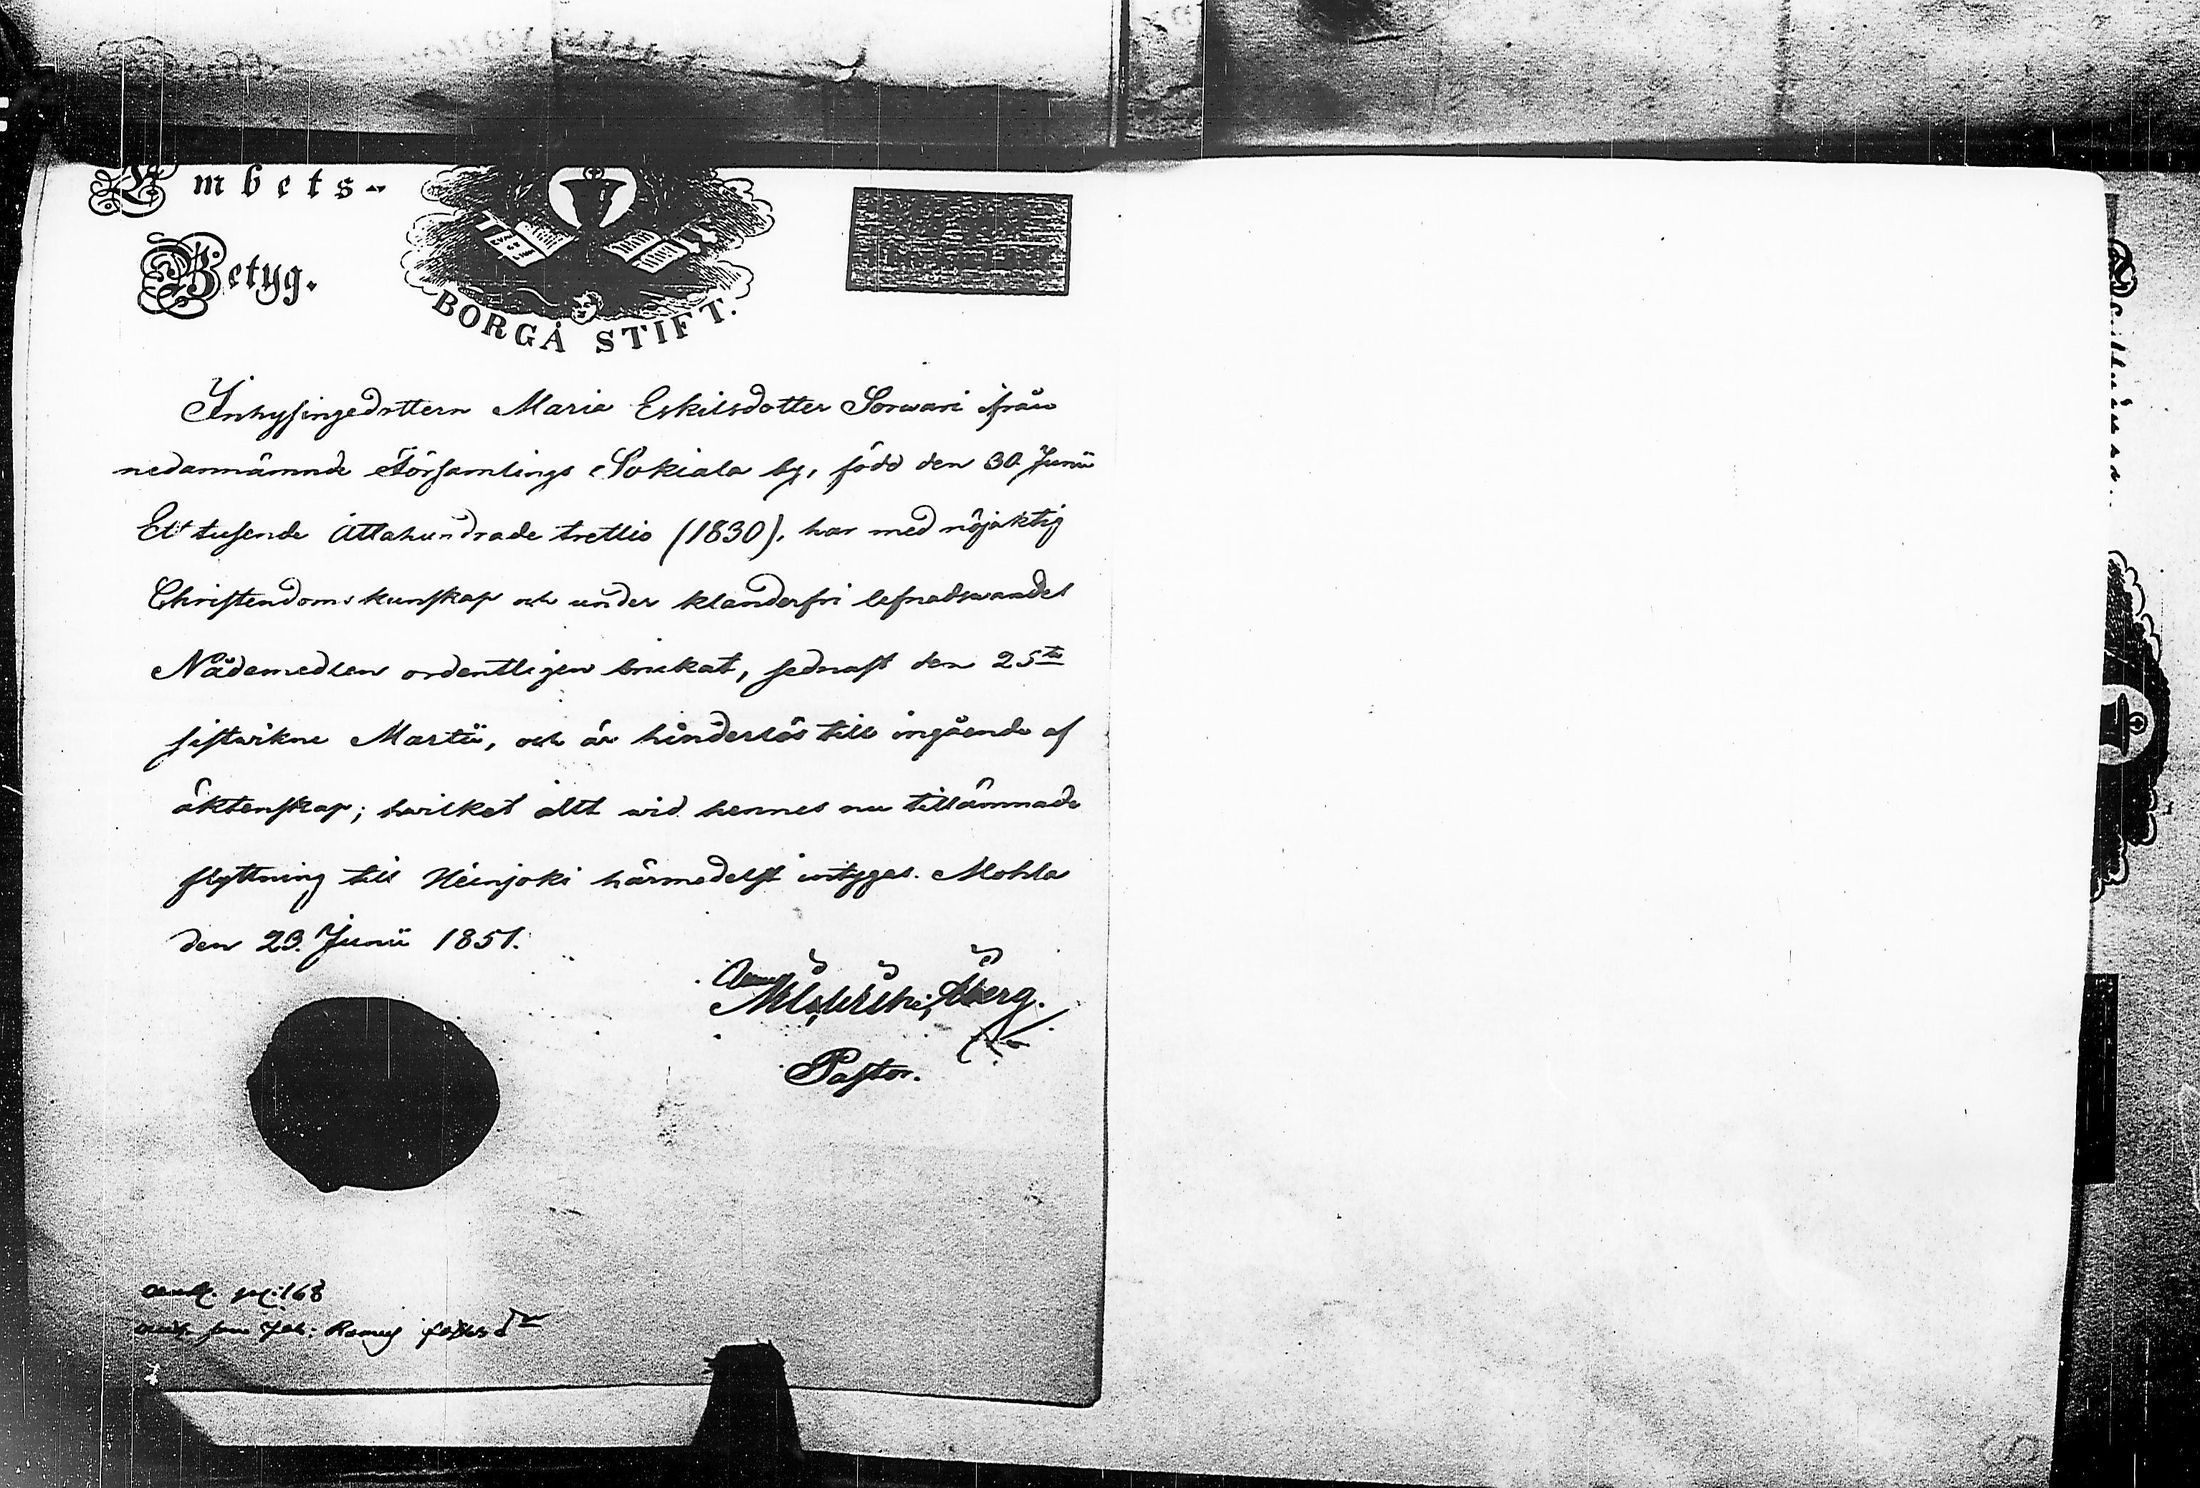 Embets-
Betyg.
BORGÅ STIFT.
Inhysingedottern Maria Eskilsdotter Sorwari från
nedannämnde Församlings Sokiala by, född den 30 Junii
Ett tusende Åttahundrade trettio (1830), har med nöjaktig
Christendomskunskap och under klanderfri lefnadswandel
Nådemedlen ordentligen brukat, sednast den 25te
sistwikne Martii, och är hinderlös till ingående af
äktenskap; hwilket allt wid hennes nu tillämnade
flyttning till Heinjoki härmedelst intygas. Mohla
den 23. Junii 1851.
Åberg.
Pastor.
168